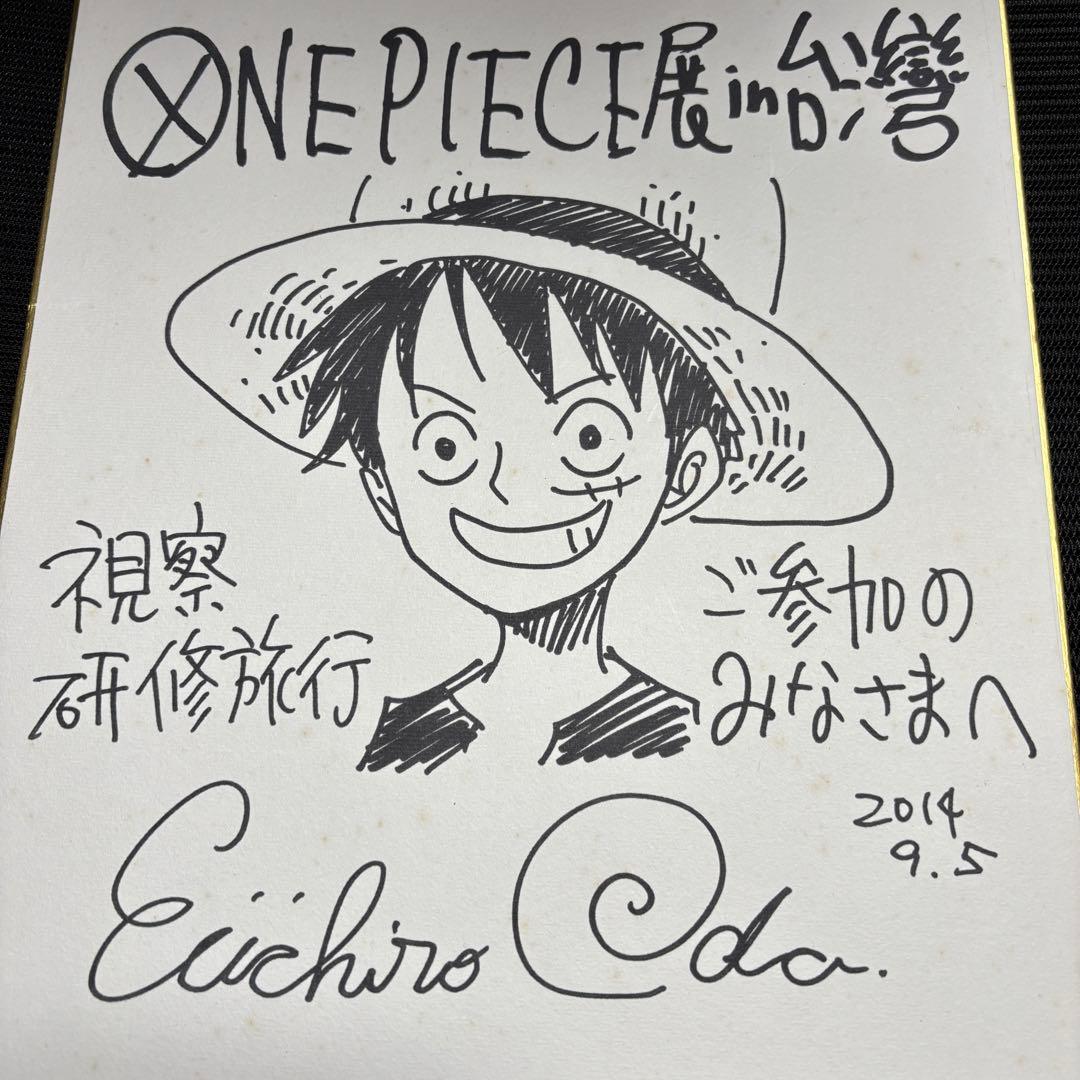 ONE PIECE展 in 台灣
視察
研修旅行
ご参加の
みなさまへ
2014
9.5
Eiichiro Oda.